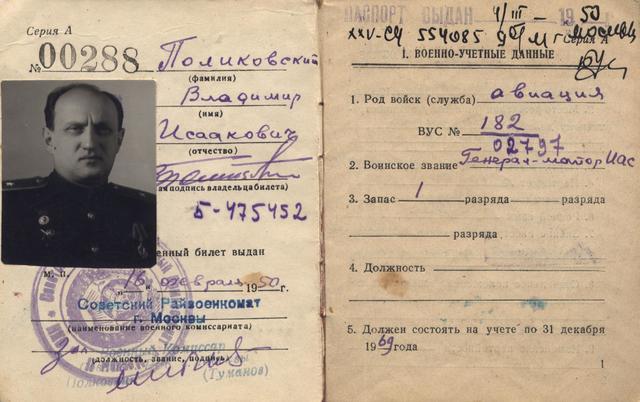 Серия А
№ 00288
Поликовский
(фамилия)
Владимир
(имя)
Исаакович
(отчество)
подпись владельца билета)
Б-475452
енный билет выдан
М. П.
"16" февраля 1950 г.
Советский Райвоенкомат
г. Москвы
(наименование военного комиссариата)
Военный Комиссар
(должность, звание, подпись)
Полковник (Туманов)
ПАСПОРТ ВЫДАН 4/III – 1950
XXV-СЧ 554085 г Москвы
Серия А
1. ВОЕННО-УЧЕТНЫЕ ДАННЫЕ
1. Род войск (служба) авиация
ВУС № 182
02797
2. Воинское звание Генерал-майор ИАС
3. Запас 1 разряда разряда
разряда
4. Должность
5. Должен состоять на учете по 31 декабря
1969 года
1